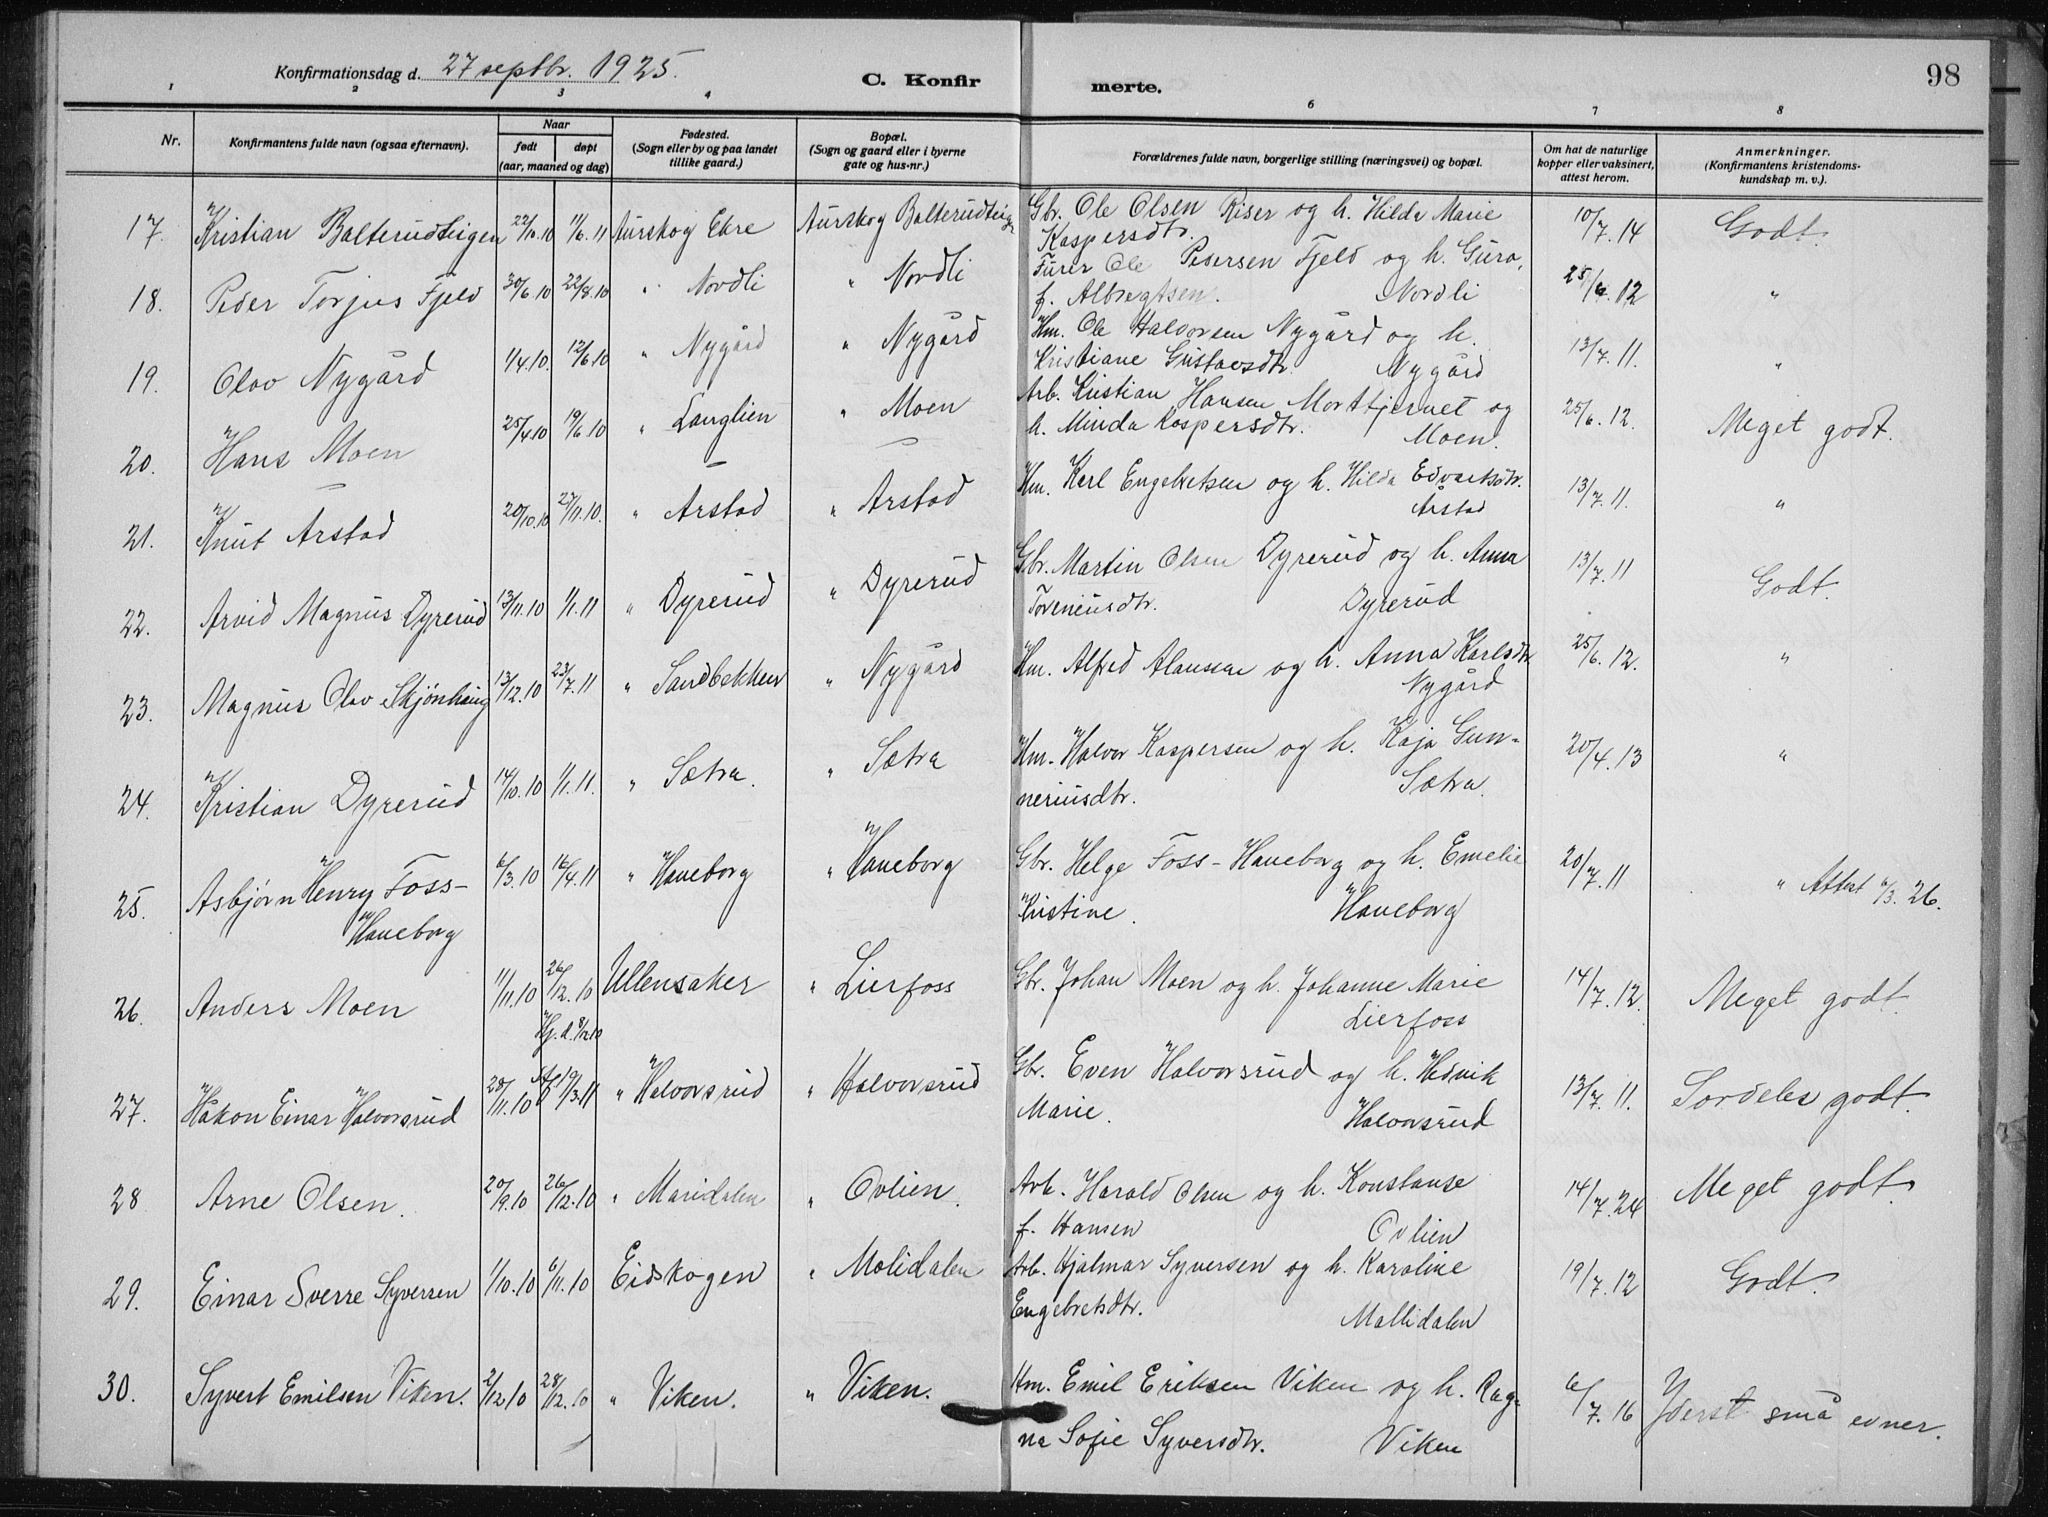 98
Konfirmationsdag d. 27 septbr. 1925.
C. Konfir merte.
1 2 3 4 6 7 8
Nr. Konfirmantens fulde navn (ogsaa efternavn). Naar født døpt (aar, maaned og dag) Fødested. (Sogn eller by og paa landet tillike gaard.) Bopæl. (Sogn og gaard eller i byerne gate og hus-nr.) Forældrenes fulde navn, borgerlige stilling (næringsvei) og bopæl. Om hat de naturlige kopper eller vaksinert, attest herom. Anmerkninger. (Konfirmantens kristendoms-kundskap m. v.).
17. Kristian Balterudteigen 22/10.10 11/6.11 Aurskog Ekre Aurskog Balterudteig Gbr. Ole Olsen Riser og h. Hilda Marie 10/7.14 Godt.
Kaspersdtr.
18. Peder Torjus Fjeld 30/6.10 22/8.10 " Nordli " Nordli Furer Ole Pedersen Fjeld og h. Guro, 25/6.12 "
f. Albregtsen. Nordli
19. Olav Nygård 1/4.10. 12/6.10 " Nygård " Nygård Hm. Ole Halvorsen Nygård og h. 13/7.11. "
Kristiane Gustavsdtr. Nygård
20. Hans Moen 25/4.10 19/6.10 " Langlien " Moen Arb. Kristian Hansen Morttjernet og 25/6.12. Meget godt.
h. Minda Kaspersdtr. Moen.
21. Knut Arstad 20/10.10 27/11.10. " Arstad " Arstad Hm. Karl Engebretsen og h. Hilda Edvartsdtr. 13/7.11. "
Arstad
22. Arvid Magnus Dyrerud 13/11.10 1/1.11 " Dyrerud " Dyrerud Gbr. Martin Olsen Dyrerud og h. Anna 13/7.11 Godt.
Toreniusdtr. Dyrerud
23. Magnus Olav Skjønhaug 13/12.10 23/7.11 " Sandbekken " Nygård Hm. Alfred Alaussen og h. Anna Karlsdtr 25/6.12. "
Nygård
24. Kristian Dyrerud 14/10.10 1/1.11. " Sætra. " Sætra Hm. Halvor Kaspersen og h. Kaja Gun- 20/4.13 "
neriusdtr. Sætra.
25. Asbjørn Henry Foss- 6/3.10 16/4.11 " Haneborg " Haneborg Gbr. Helge Foss-Haneborg og h. Emelie 20/7.11 " Attest 6/3.26.
Haneborg Kristine. Haneborg
26. Anders Moen 11/11.10 26/12.10 Ullensaker " Lierfoss Gbr. Johan Moen og h. Johanne Marie 14/7.12. Meget godt.
Hj.d. 8/12.10 Lierfoss
27. Håkon Einar Halvorsrud 28/11.10 19/3.11 " Halvorsrud " Halvorsrud Gbr. Even Halvorsrud og h. Hedvik 13/7.11. Særdeles godt.
Marie. Halvorsrud
28 Arne Olsen. 20/9.10 26/12.10 " Maridalen " Ovlien. Arb. Harald Olsen og h. Konstanse 14/7.24 Meget godt.
f. Hansen Ovlien
29. Einar Sverre Syversen 1/10.10 6/11.10 Eidskogen " Molidalen Arb. Hjalmar Syversen og h. Karoline 19/7.12 Godt.
Engebretsdtr. Mallidalen
30. Syvert Emilsen Viken. 2/12.10 28/12.10 " Viken. " Viken. Hm. Emil Eriksen Viken og h. Rag- 6/7.16 Yderst små evner.
na Sofie Syversdtr. Viken